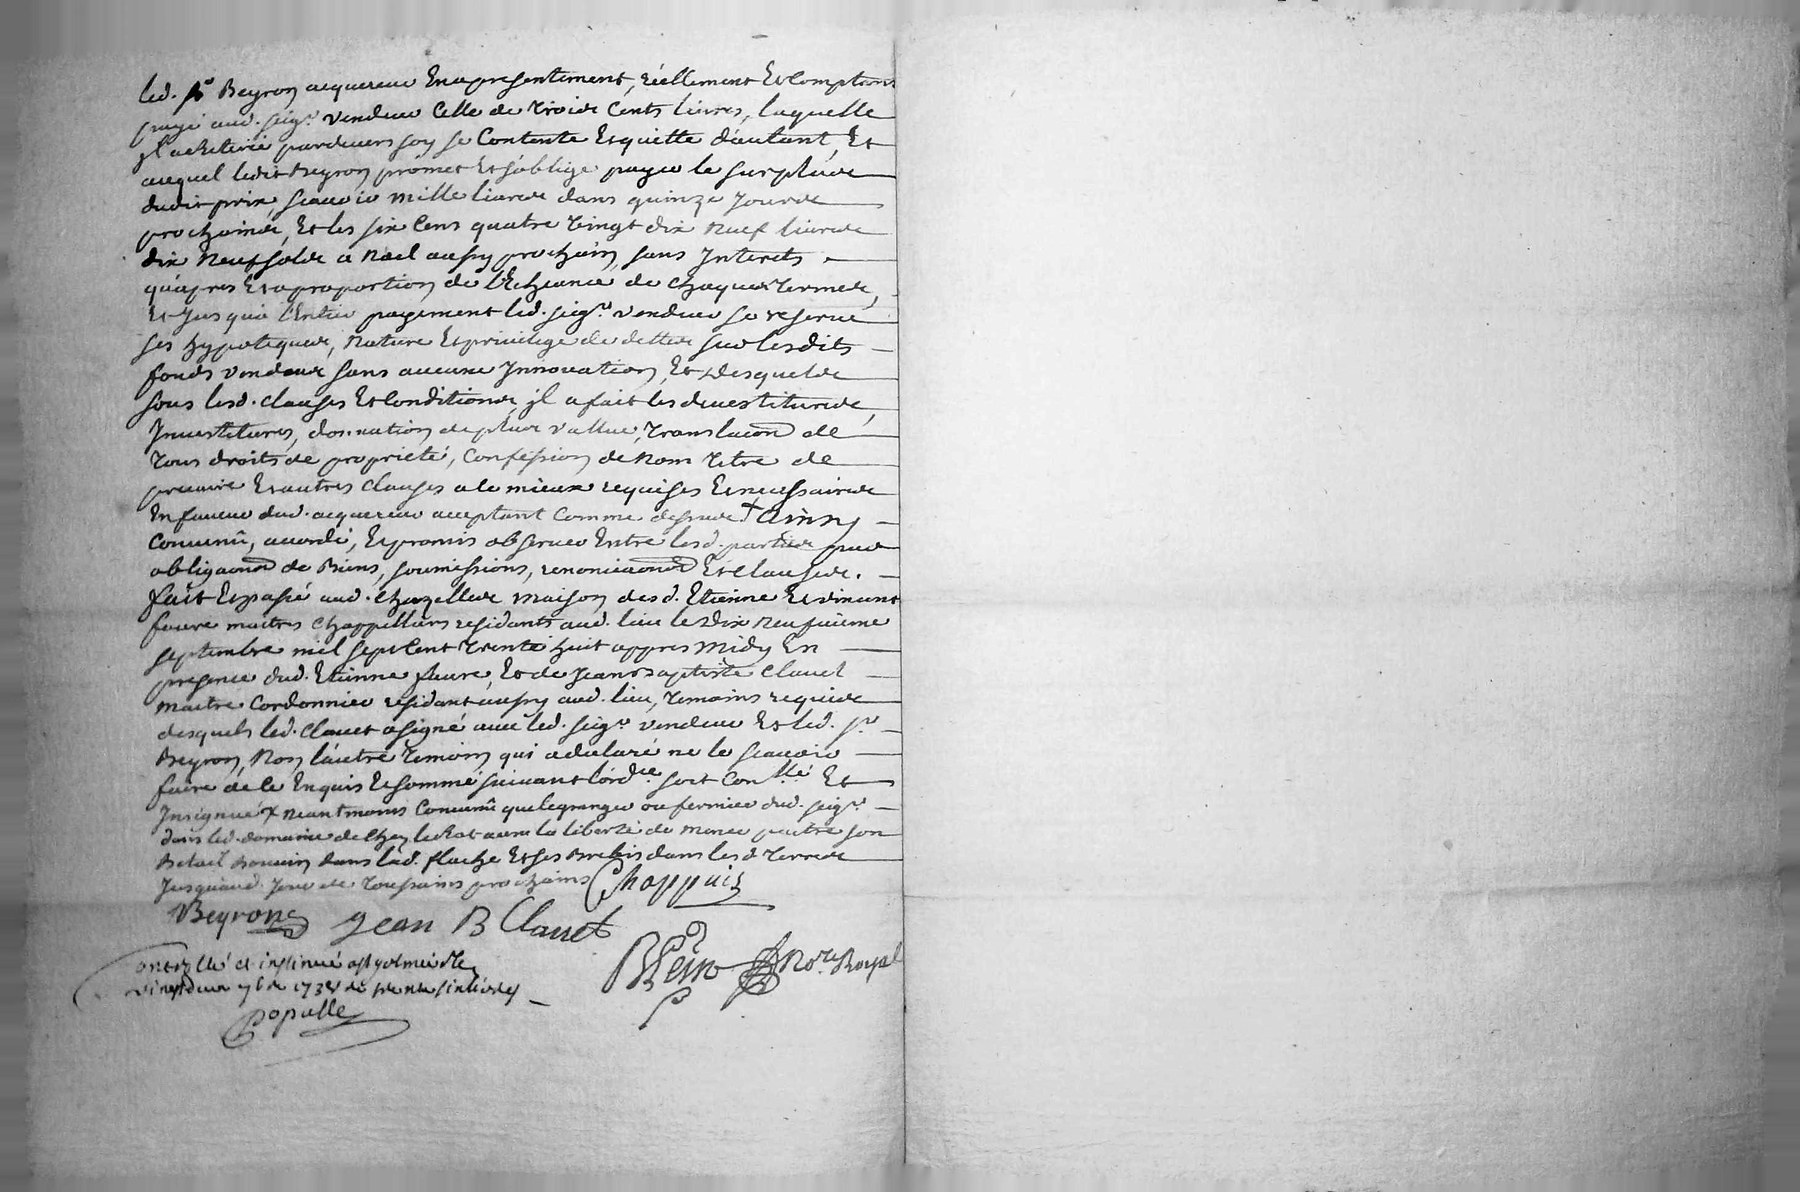 led. Sr Beyron acquereur En apresentiment, réellement Et Comptant
payé aud. seigr. vendeur Celle de Troide Cents livres, laquelle
jl a Retirée pardevers soy se Contente Et quitte d'autant, Et
auquel ledit Beyron promet Et s'oblige payer le surplus
dudit prix, scavoir mille livres dans quinze Jours
prochains, Et les six Cens quatre vingt dix neuf livres
dix neuf sols a Noel aussy prochain, sans Interets
qu'apres Et a proportion de l'Echeance de chaques Termes,
Et Jusqu'a l'Entier payement led. seigr. vendeur se reserve
ses hypoteques, Nature Et privilege de dettes sur lesdits
fonds vendus sans aucune Innovation, Et desquels
sous lesd. clauses Et Conditions, jl a fait les devestitures,
Investitures, donnation de plus vallue, Translaõn de
Tous droits de proprieté, Confession de Nom Titre de
precaire Et autres clauses a le mieux requises Et necessaires
En faveur dud. acquereur acceptant Comme dessus + Ainsy
Convenû, accordé, Et promis observer Entre lesd. parties par
obligaõn de Biens, soumissions, renonciaõn Et clauses.
fait Et passé aud. Chazelles maison desd. Etienne Et vincent
faure maitres Chappelliers residants aud. lieu le Dix Neufuieme
septembre mil sept Cent Trente huit appres midy En
presence dud. Etienne faure, Et de Jean Baptiste Clauet
maitre Cordonnier residant aussy aud. lieu, Temoins requis
desquels led. Clauet a signé avec led. seigr. vendeur Et led. Sr.
Beyron, Non l'autre Temoin qui a declaré ne le scavoir
faire de ce Enquis Et sommé suivant l'ordce soit Conllé Et
Insignué + neantmoins Convenû que le granger ou fermier dud. seigr.
dans led. domaine de Chez le Rat aura la liberté de mener paitre son
Betail Bouvin dans lad. flache Et ses Brebis dans lesd. Terres
Jusqu'aud. Jour de Toussains prochains Chappuis
Beyron Jean B Clauet
No.re Royal
Controllé et insinué a st galmier le
vingt deux 7b.re 1738
Populle